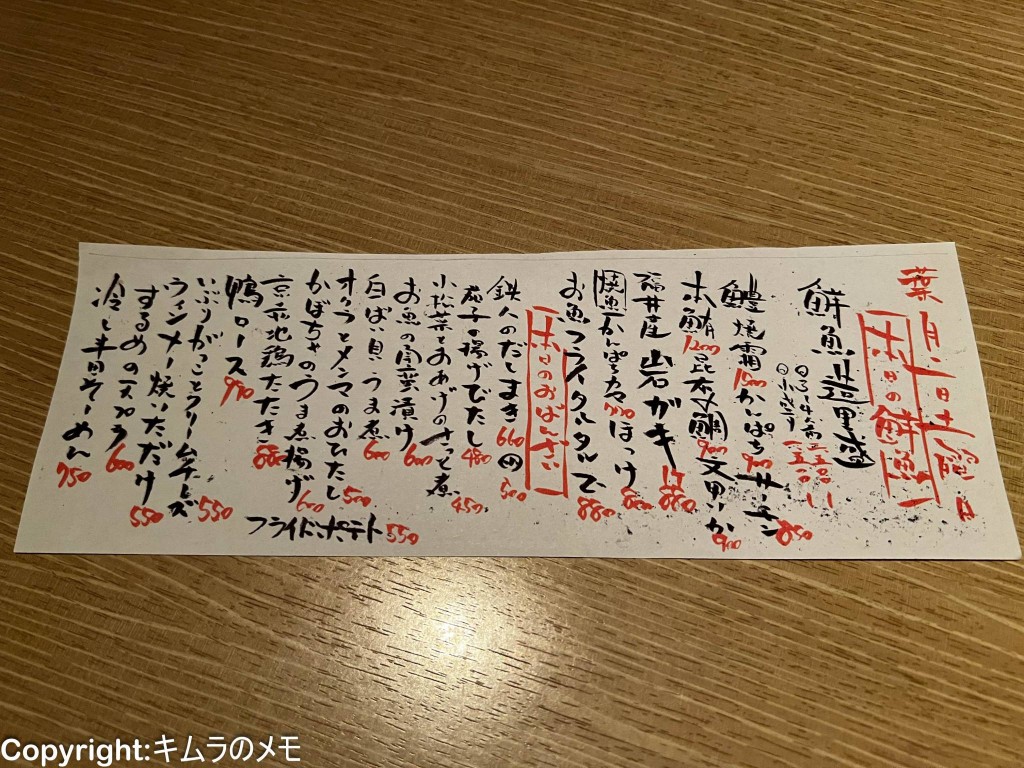 葉月二日土曜日
本日の鮮魚
鮮魚造里盛
鱧焼霜1500かんぱち900サーモン850
本鮪1200昆布〆鯛900文甲いか900
福井産岩ガキ
焼魚かんぱちカマ ほっけ
お魚フライタルタルで880
本日のおばんざい
鉄人のだしまき660
茄子の揚げびたし480
小松菜とああげのさっと煮450
お魚の南蛮漬け600
白ばい貝うま煮600
オクラとメンマのおひたし500
かぼちゃのうま煮揚げ600
京赤地鶏たたき880
鴨ロース970
いぶりがっことクリームチーズ550
ウインナー焼いただけ550
するめの天ぷら600
冷し半田そーめん750
フライドポテト550
Copyright:キムラのメモ